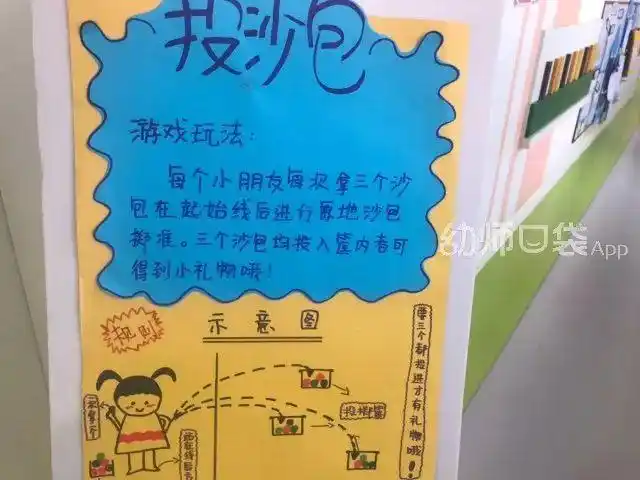 投沙包
游戏玩法:
每个小朋友每次拿三个沙
包在起始线后进行原地沙包
掷准。三个沙包均投入筐内者可
得到小礼物哦!
幼师口袋App
规则
示意图
要三个都投进才有礼物哦!
投掷筐
站在线后方